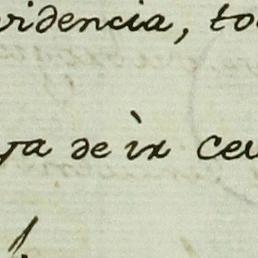 videncia, to
ya de ir cer